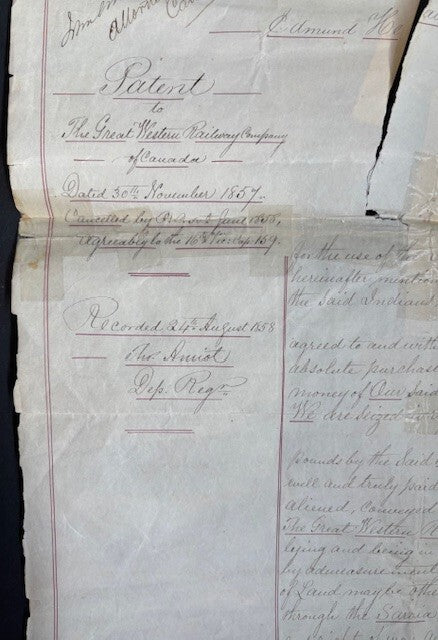 Attorney
Edmund He
Patent
to
The Great Western Railway Company
of Canada
Dated 30th November 1857.
Cancelled by
agreeably to the 16th Vic: Cap 159.
Recorded 24th August 1858
Tho Amiot
Dep. Regr
for the use of the
hereinafter mention
the said Indians
agreed to and with
absolute purchase
money of Our Said
We are seized
pounds by the Said
well and truly paid
aliened, conveyed
The Great Western
lying and being in
by admeasurement
of Land may be othe
through the Sarnia